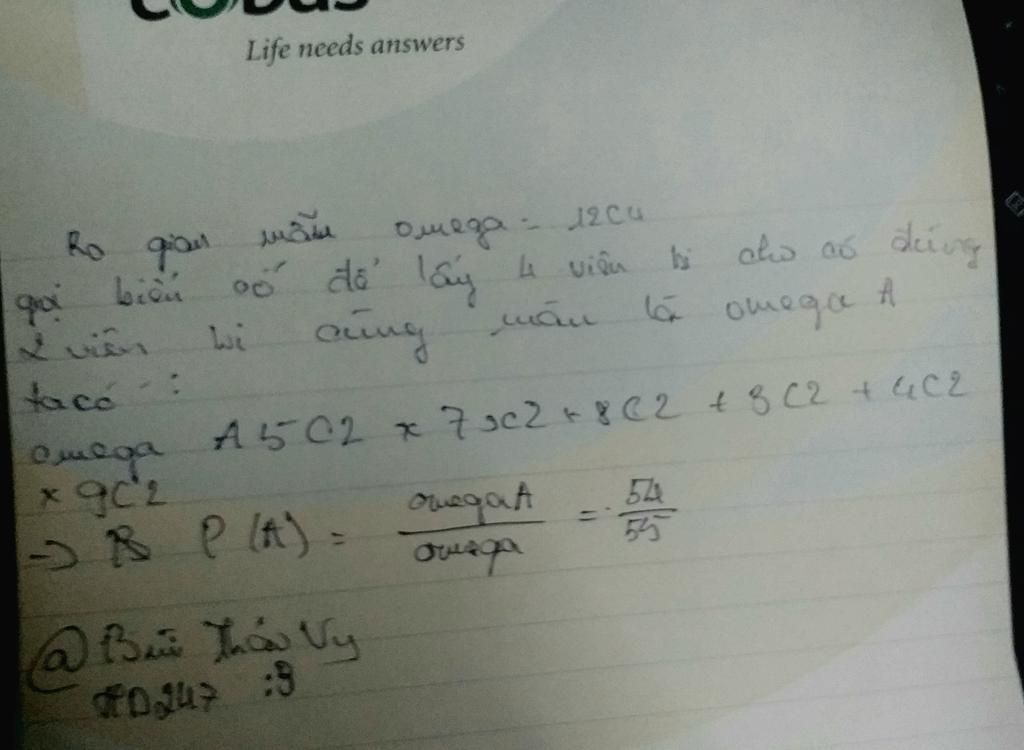 Life needs answers
Ko gian mẫu omega = 12C4
gọi biến cố để lấy 4 viên bi cho có đúng
2 viên bi cùng màu là omega A
ta có :
omega A 5C2 x 7C2 + 8C2 + 3C2 + 4C2
x 9C2
-> P(A) = omega A / omega = 54 / 55
@ Bùi Thảo Vy
#D247 :3